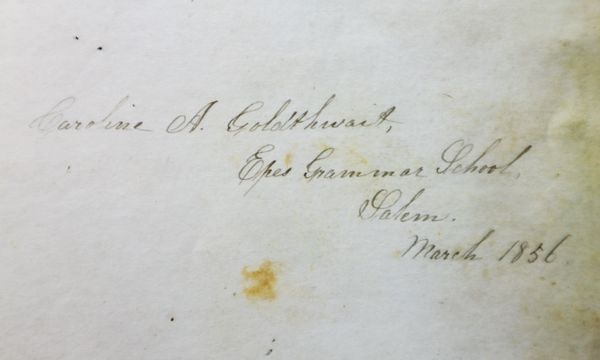 Caroline A. Goldthwait,
Epes Grammar School,
Salem.
March 1856.